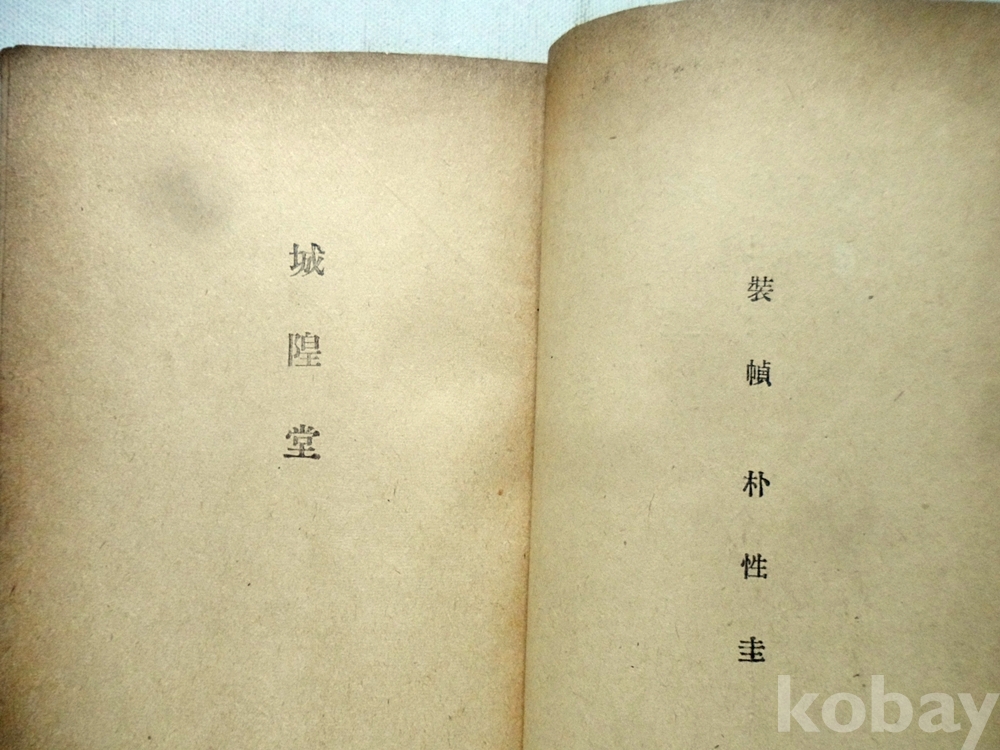 裝幀 朴性圭
城隍堂
kobay